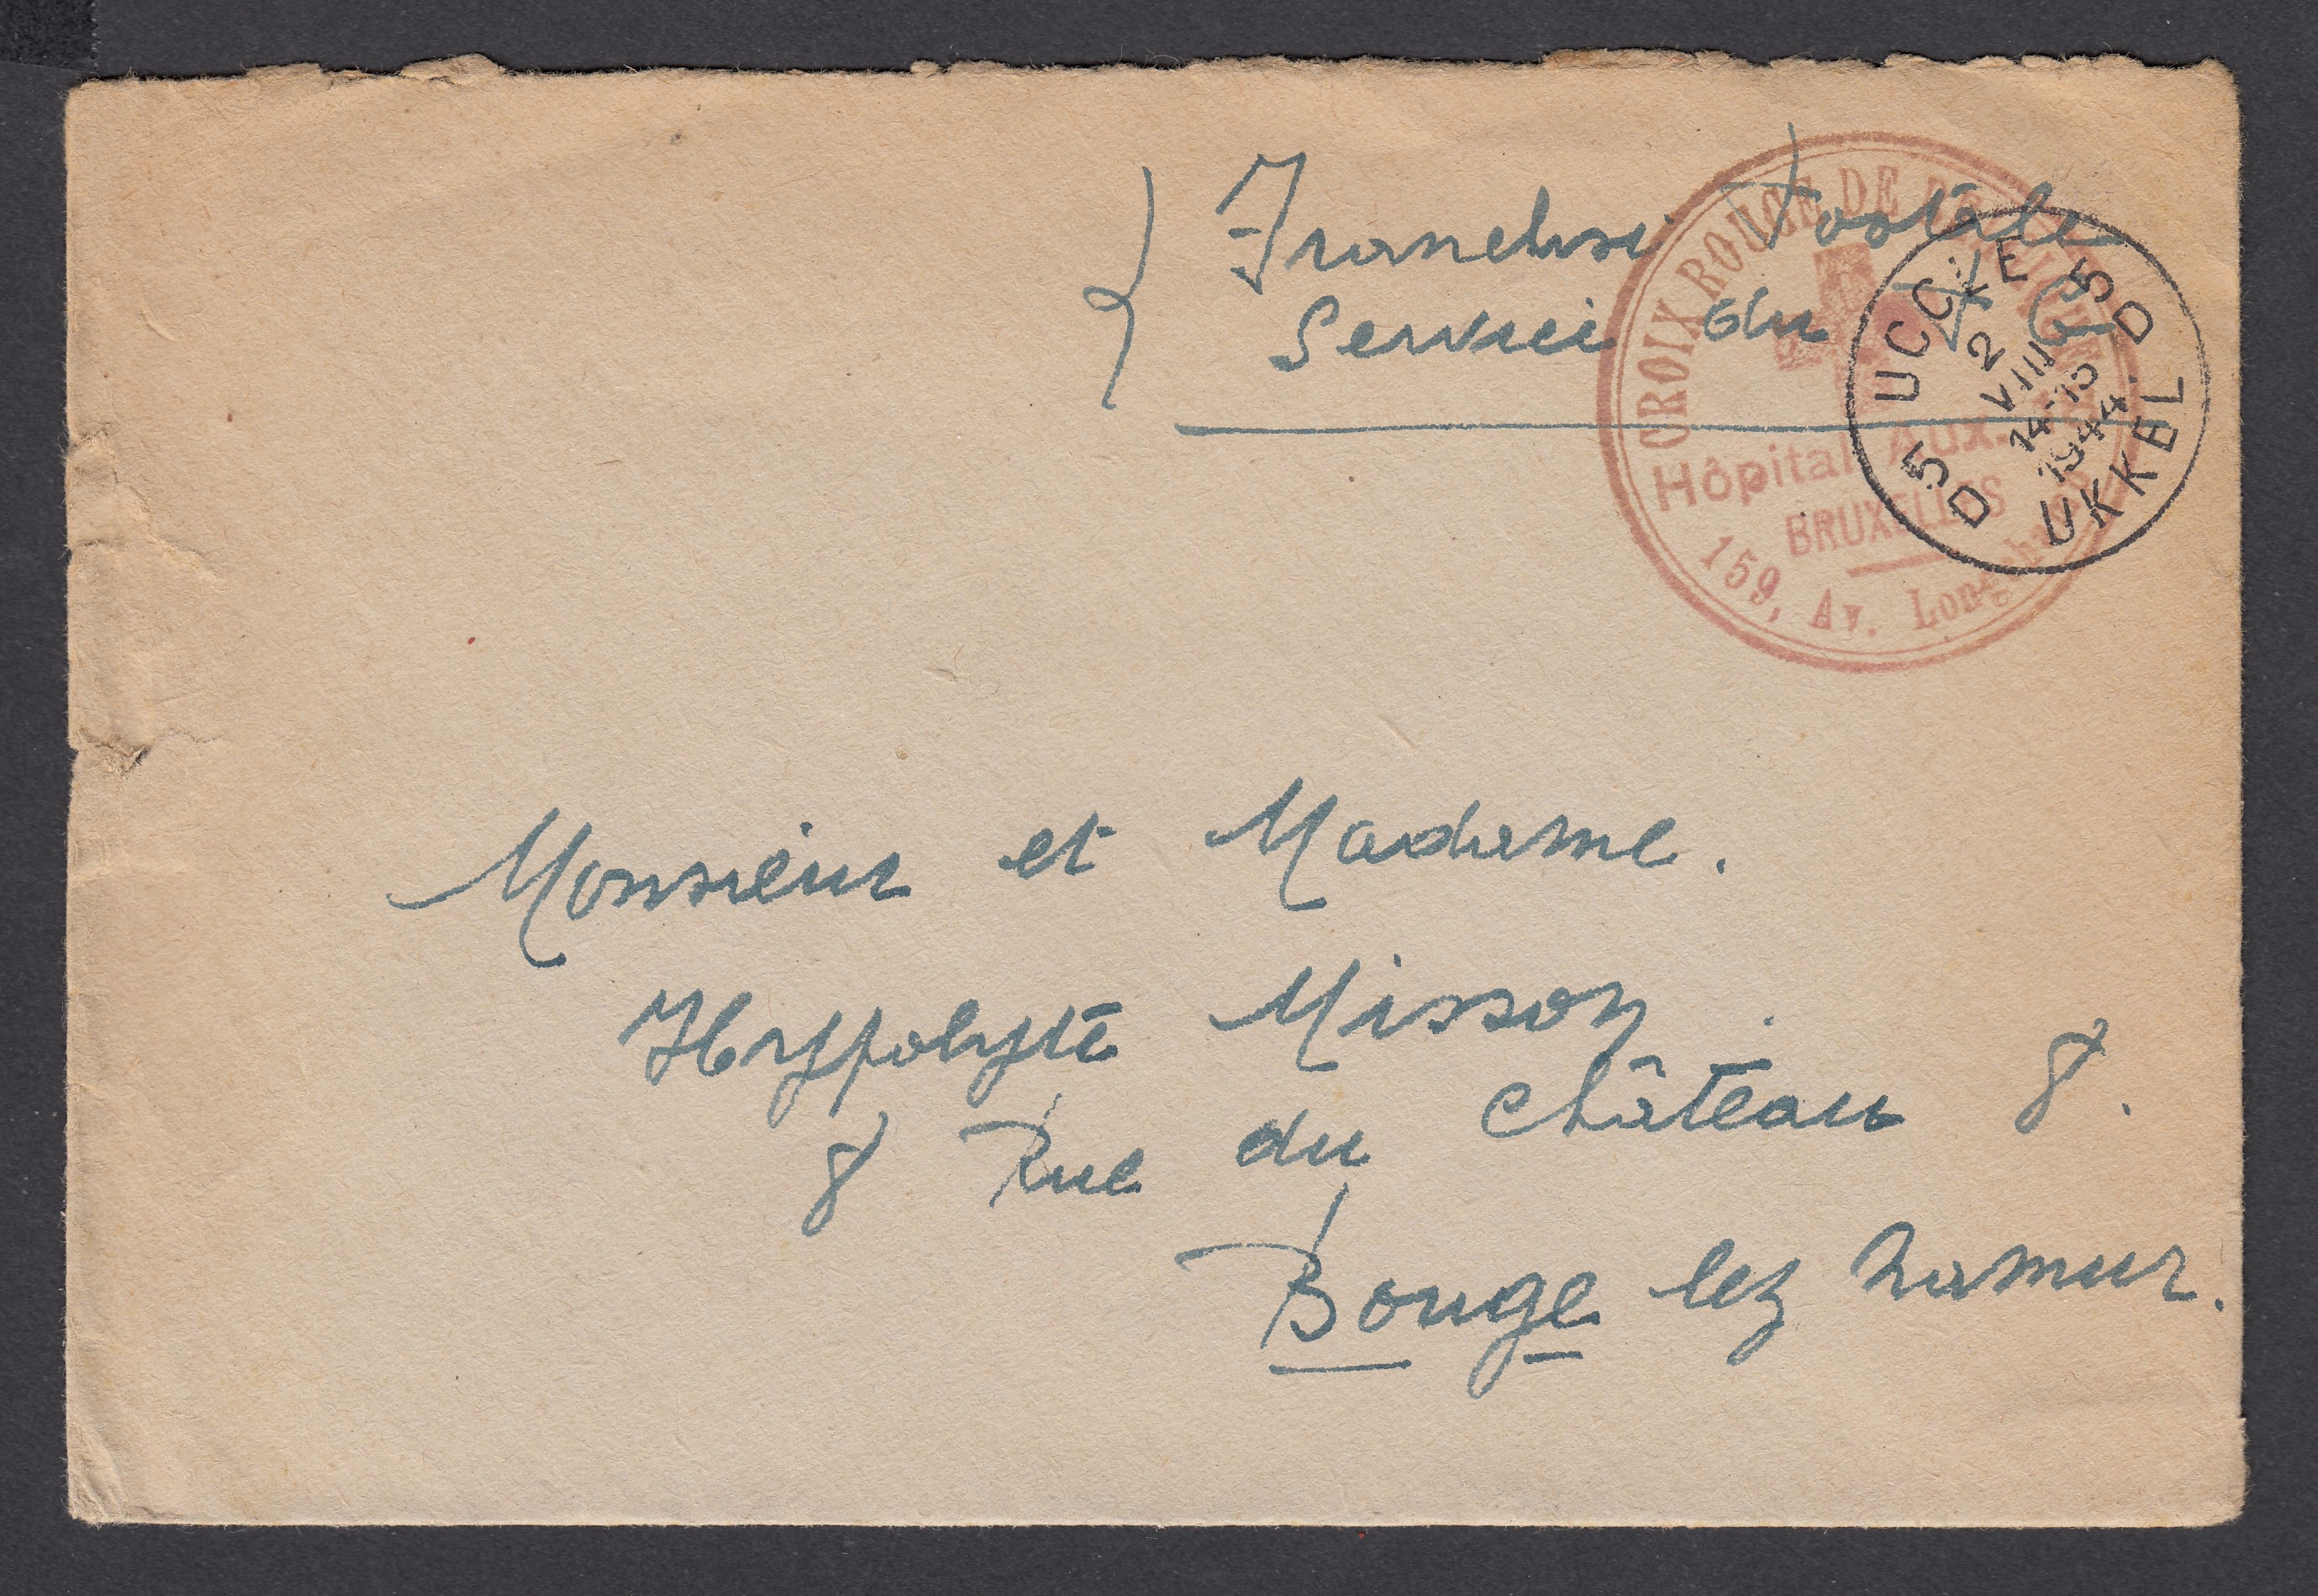 Franchise Postale
Service du
CROIX ROUGE DE BELGIQUE
Hôpital Aux.
BRUXELLES
159, Av. Longchamp
UCCLE 5 D
2
VIII
14-15
1944
5 D UKKEL
Monsieur et Madame.
Hyppolyte Misson.
8 Rue du Château 8.
Bouge lez Namur.